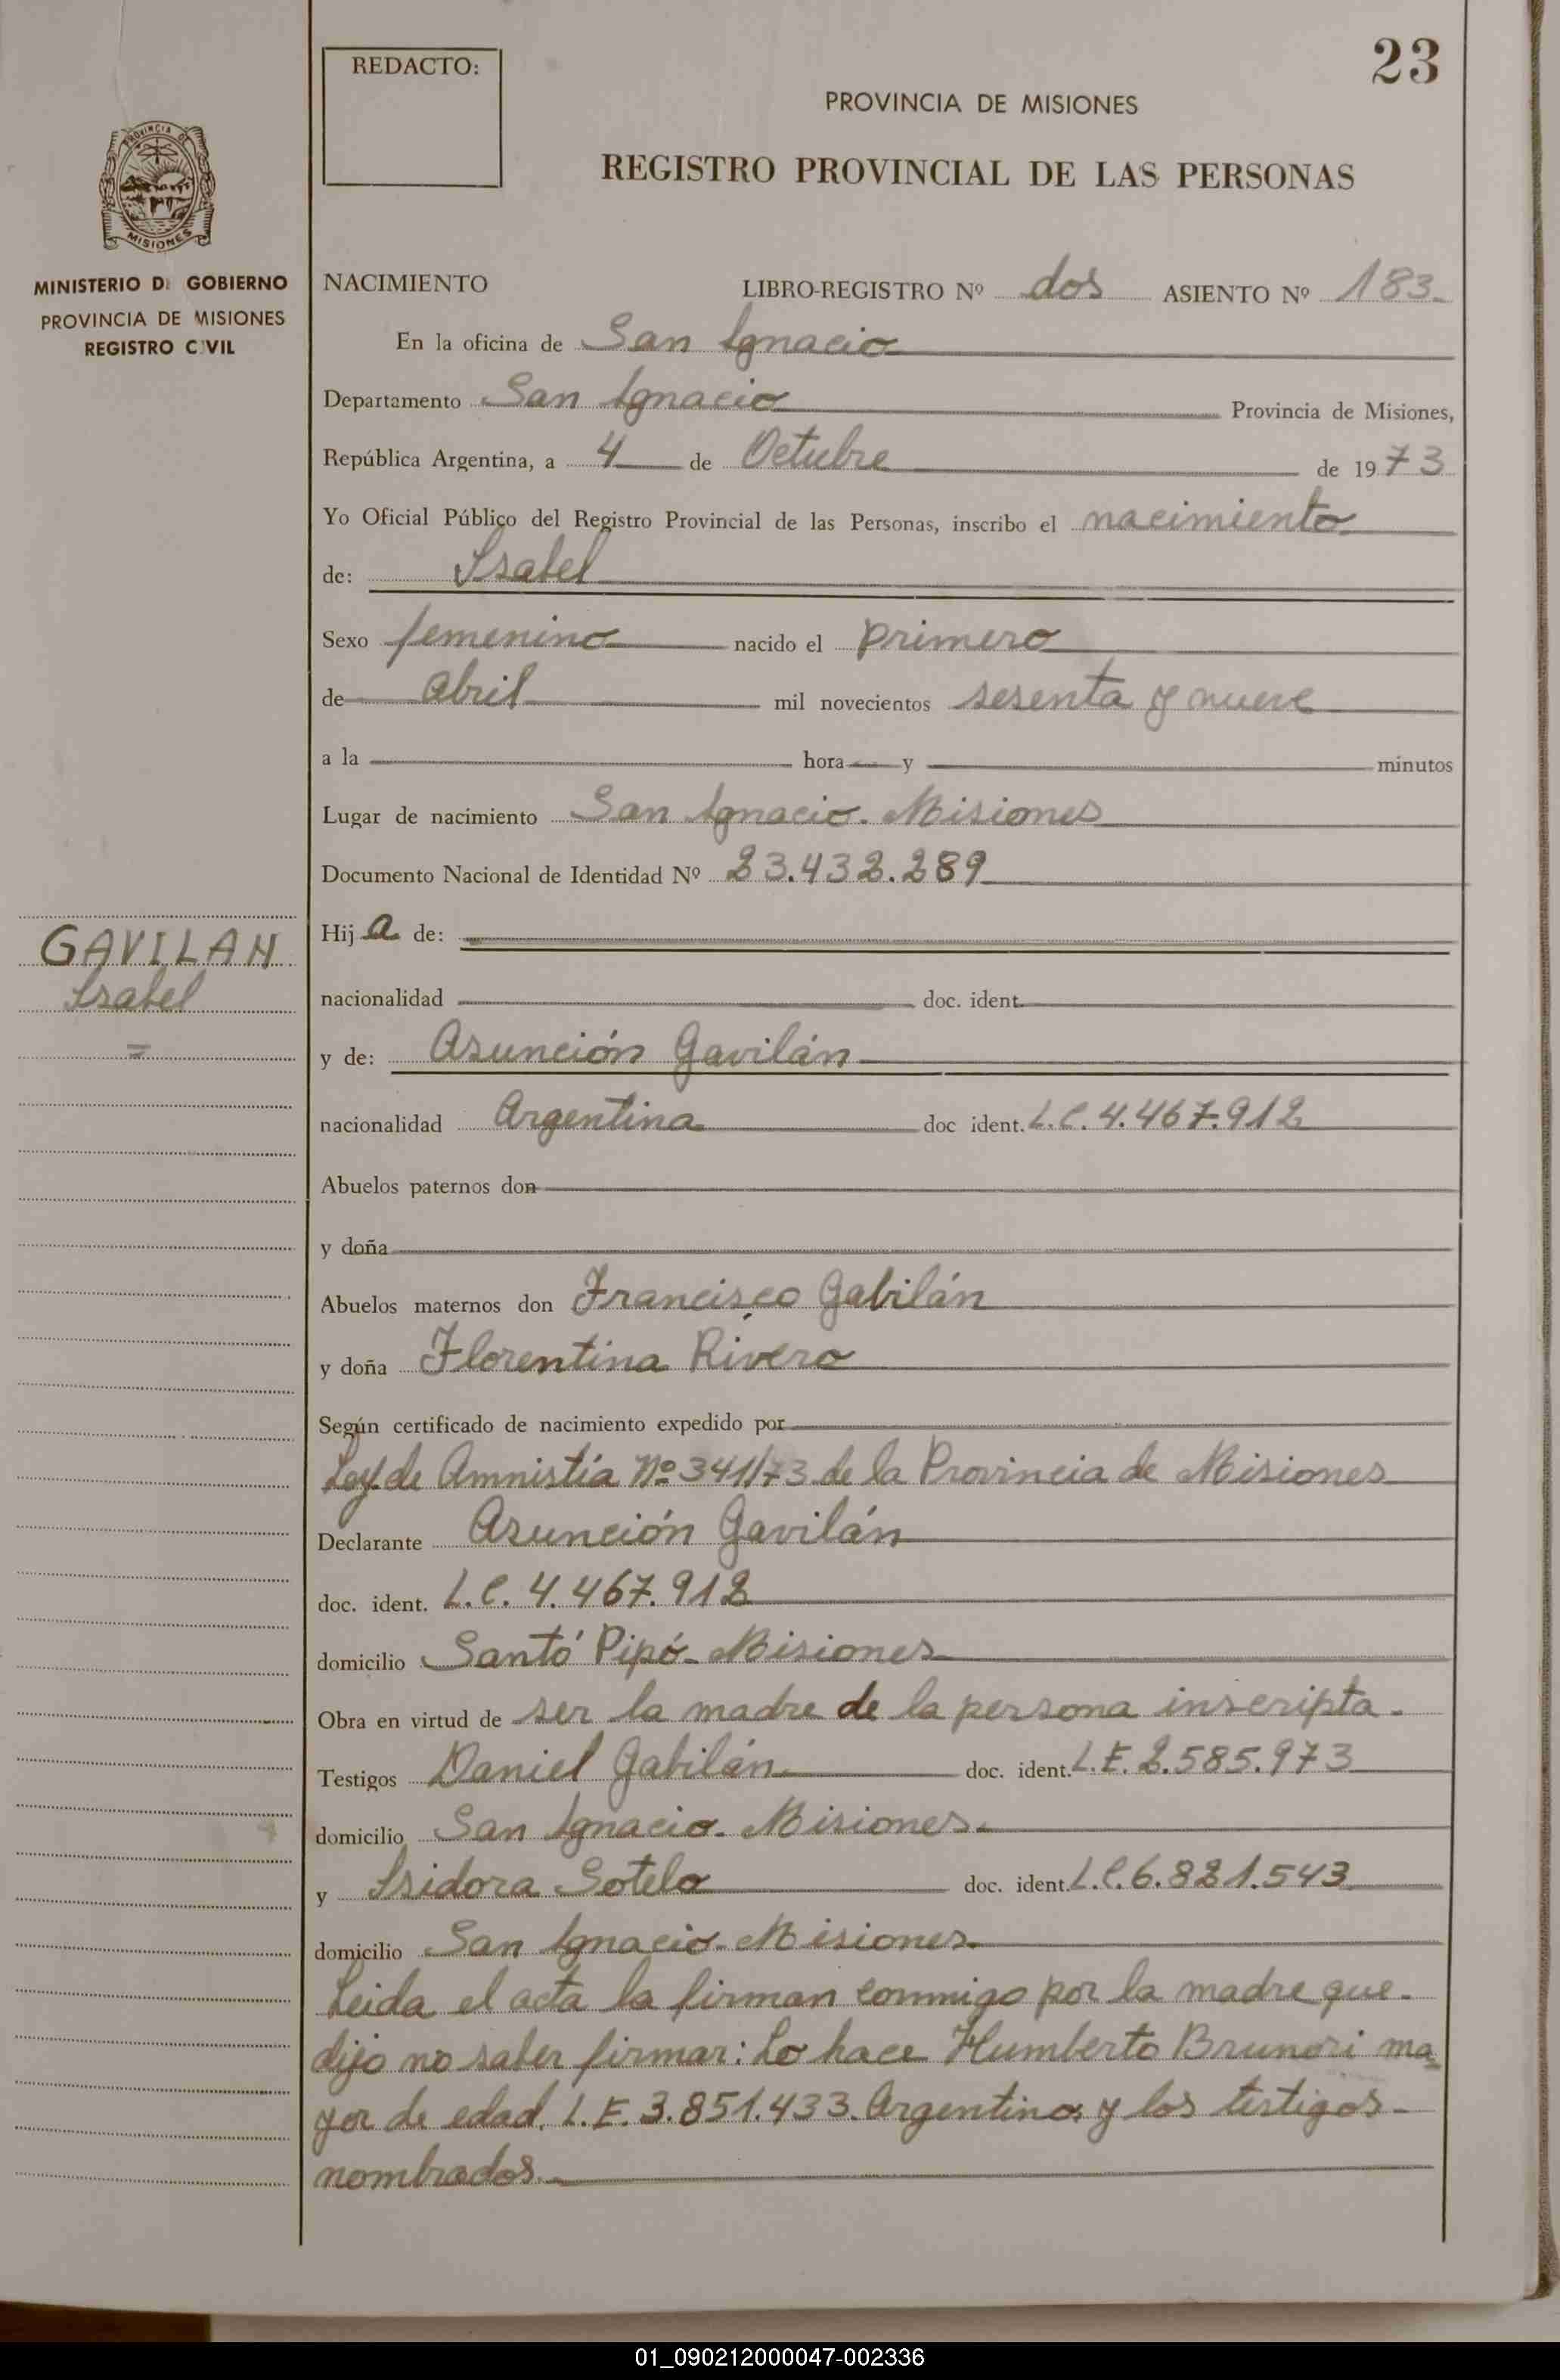 REDACTO:
23
PROVINCIA DE MISIONES
REGISTRO PROVINCIAL DE LAS PERSONAS
PROVINCIA DE
MISIONES
MINISTERIO D GOBIERNO
PROVINCIA DE MISIONES
REGISTRO C VIL
NACIMIENTO LIBRO-REGISTRO Nº dos ASIENTO Nº 183
En la oficina de San Ignacio
Departamento San Ignacio Provincia de Misiones,
República Argentina, a 4 de Octubre de 1973
Yo Oficial Público del Registro Provincial de las Personas, inscribo el nacimiento
de: Isabel
Sexo femenino nacido el primero
de abril mil novecientos sesenta y nueve
a la hora y minutos
Lugar de nacimiento San Ignacio. Misiones
Documento Nacional de Identidad Nº 23.432.289
GAVILAN
Isabel
=
Hija de:
nacionalidad doc. ident.
y de: Asunción Gavilán
nacionalidad Argentina doc ident. L.C. 4.467.912
Abuelos paternos don
y doña
Abuelos maternos don Francisco Gabilán
y doña Florentina Rivero
Según certificado de nacimiento expedido por
Ley de Amnistía Nº 341/73 de la Provincia de Misiones
Declarante Asunción Gavilán
doc. ident. L.C. 4.467.912
domicilio Santó Pipó- Misiones
Obra en virtud de ser la madre de la persona inscripta.
Testigos Daniel Gabilán doc. ident. L.E. 2.585.973
domicilio San Ignacio. Misiones.
y Isidora Sotelo doc. ident. L.C. 6.821.543
domicilio San Ignacio. Misiones.
Leida el acta la firman conmigo por la madre que-
dijo no saber firmar: Lo hace Humberto Brunori ma
yor de edad. L.E. 3.851.433. Argentino y los testigos-
nombrados.
01_090212000047-002336